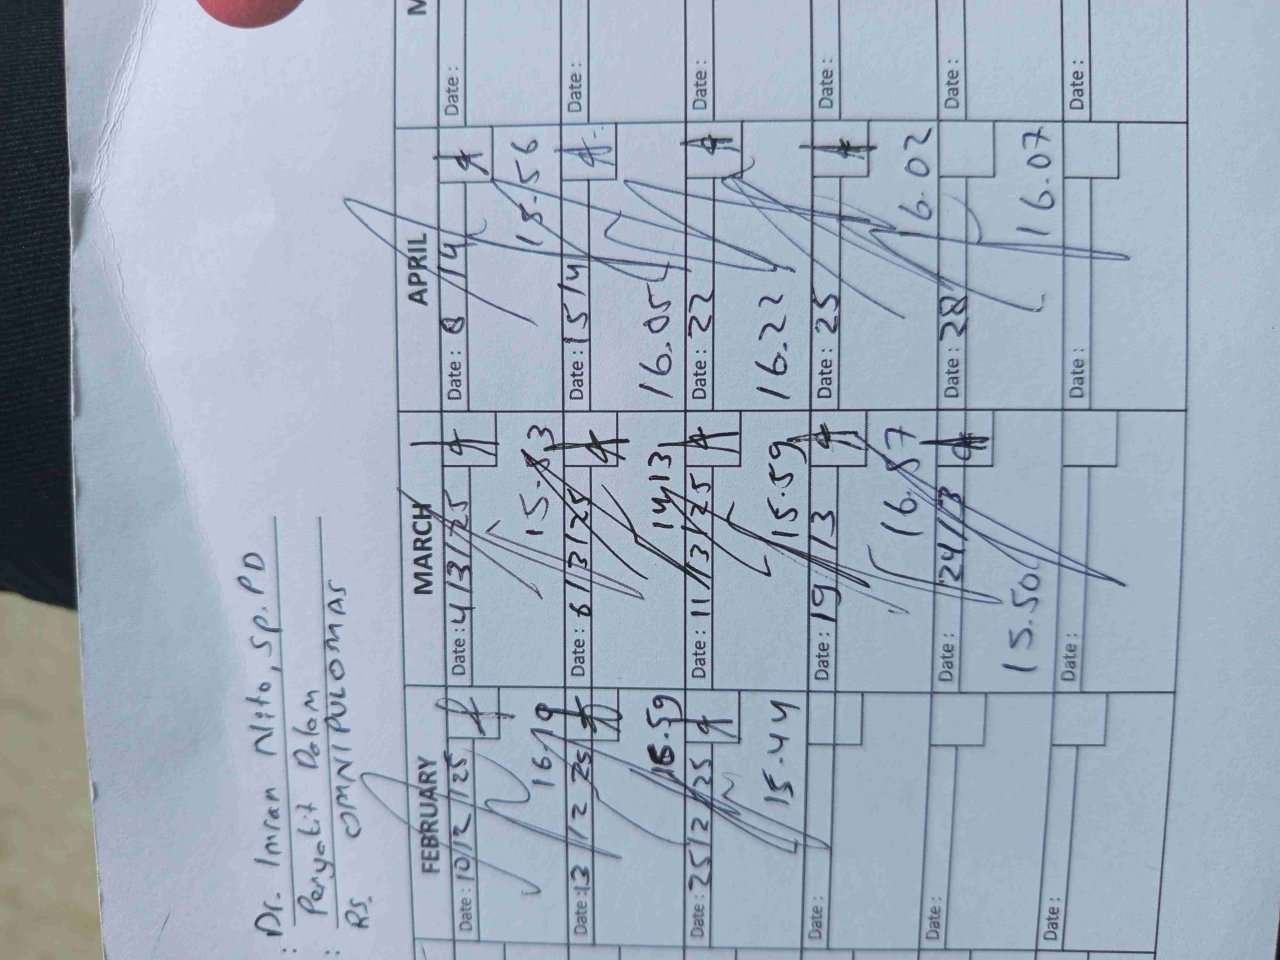 : Dr. Imran Nito, Sp.PD
Penyakit Dalam
: RS. OMNI PULOMAS
FEBRUARY MARCH APRIL M
Date: 10/2/25 Date: 4/3/25 Date: 8/4 Date:
16.19 15.56
Date: 13/2 25 Date: 6/3/25 Date: 15/4 Date:
14.13 16.05
Date: 25/2/25 Date: 11/3/25 Date: 22 Date:
15.44 15.59 16.22
Date: Date: 19/3 Date: 25 Date:
16.02
Date: Date: 24/3 Date: 28 Date:
15.50 16.07
Date: Date: Date: Date: